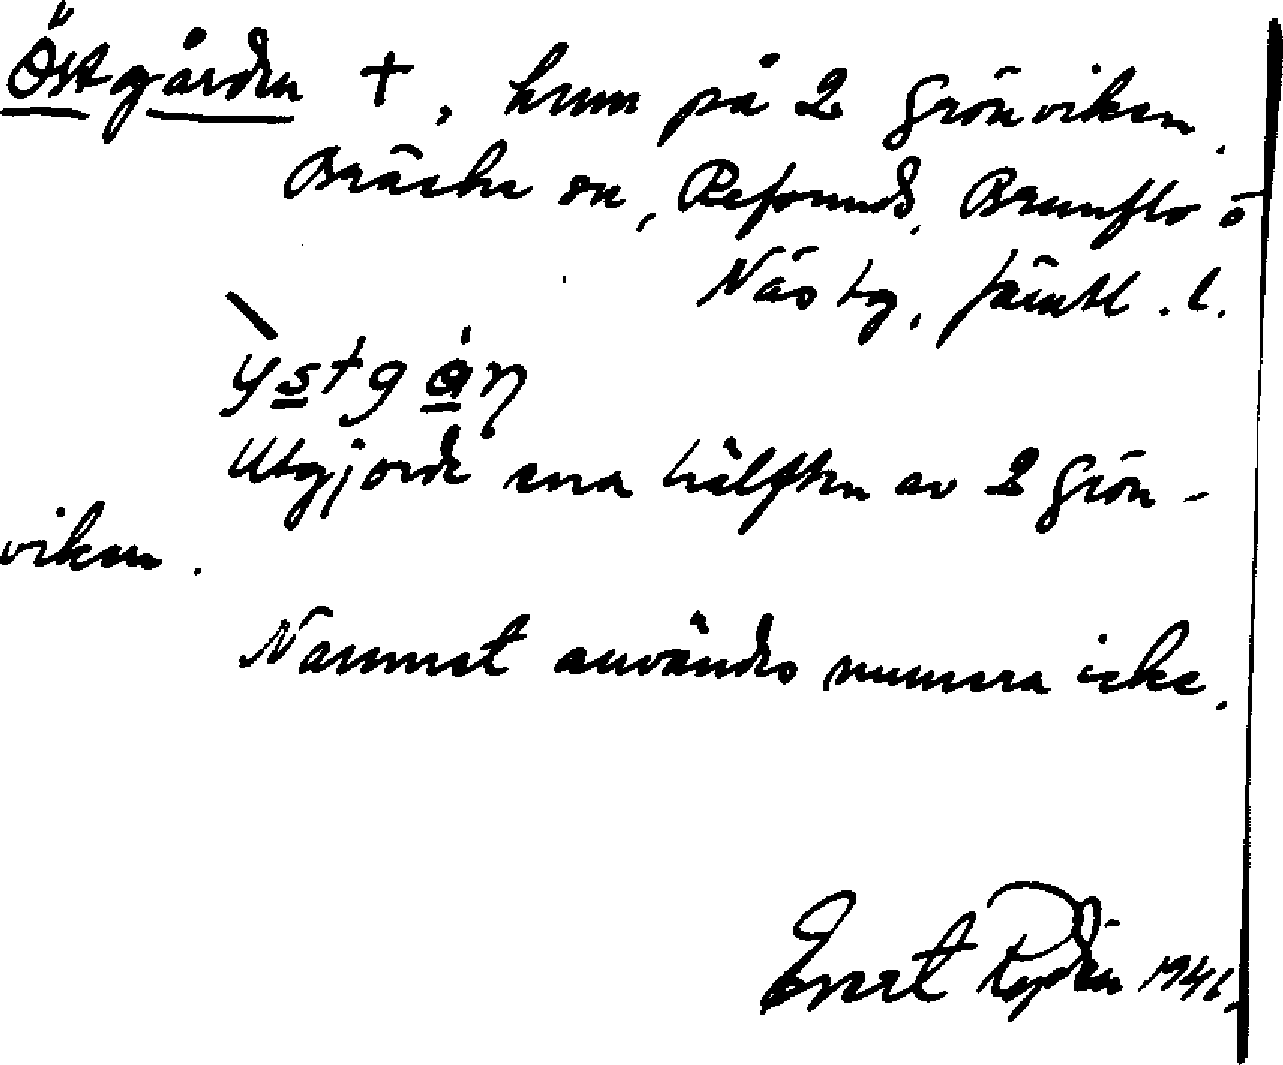 Östgården †, hem på 2 Grönviken.
Bräcke sn, Refsunds, Brunflo o
Näs tg, Jämtl. l.
ỳstgán
Utgjorde ena hälften av 2 Grön-
viken.
Namnet användes numera icke.
Evert Rydén 1941.